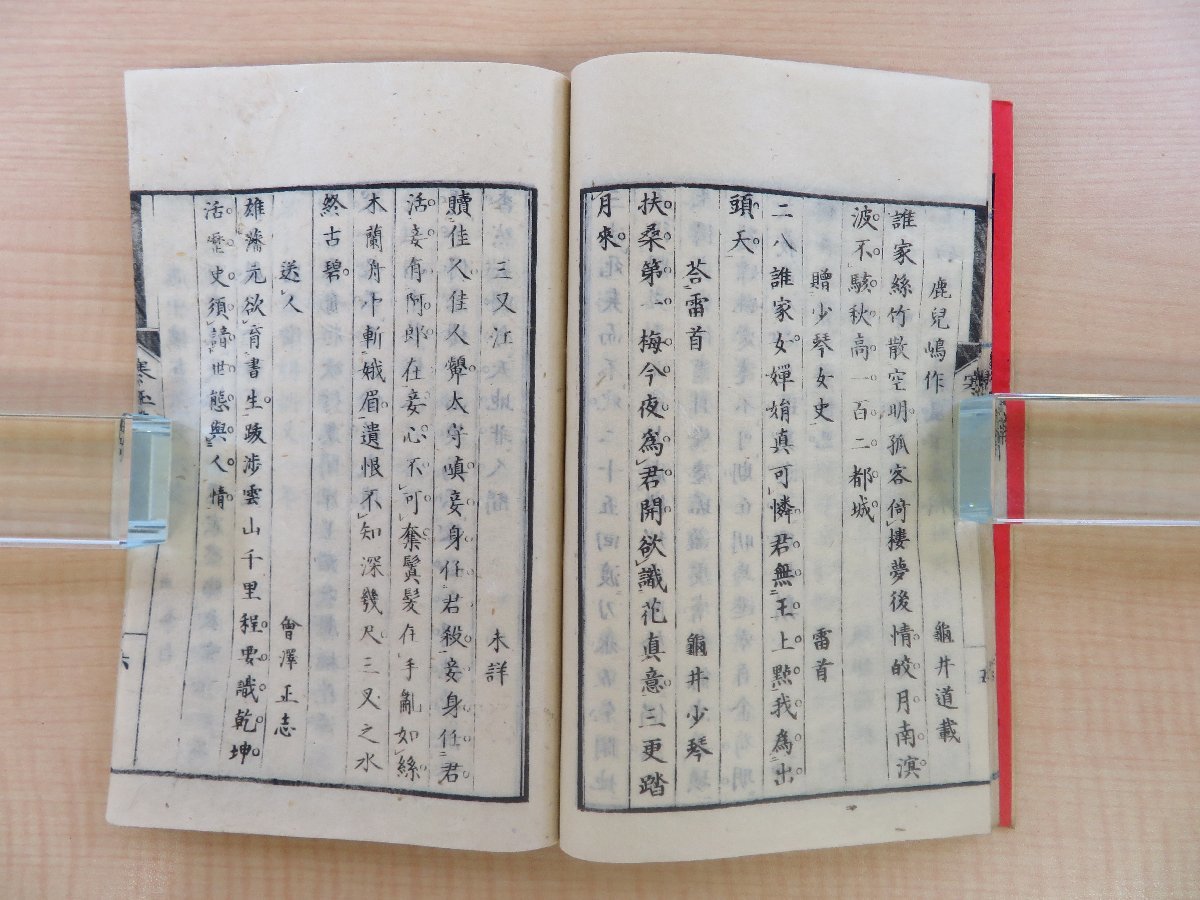 鹿兒嶋作 龜井道載
誰家絲竹散空明。孤客倚樓夢後情。皎月南溟
波不駭。秋高一百二都城。
贈少琴女史 雷首
二八誰家女。嬋娟真可憐。君無王上點。我為出
頭天。
荅雷首 龜井少琴
扶桑第一梅。今夜為君開。欲識花真意。三更踏
月來。
三叉江 未詳
贖佳人。佳人顰。太守嗔。妾身任君殺。妾身任君
活。妾有阿郎在。妾心不可奪。鬒髮在手亂如絲。
木蘭舟中斬娥眉。遺恨不知深幾尺。三叉之水
終古碧。
送人 會澤正志
雄藩元欲育書生。跋涉雲山千里程。要識乾坤
活歷史。須讀世態與人情。